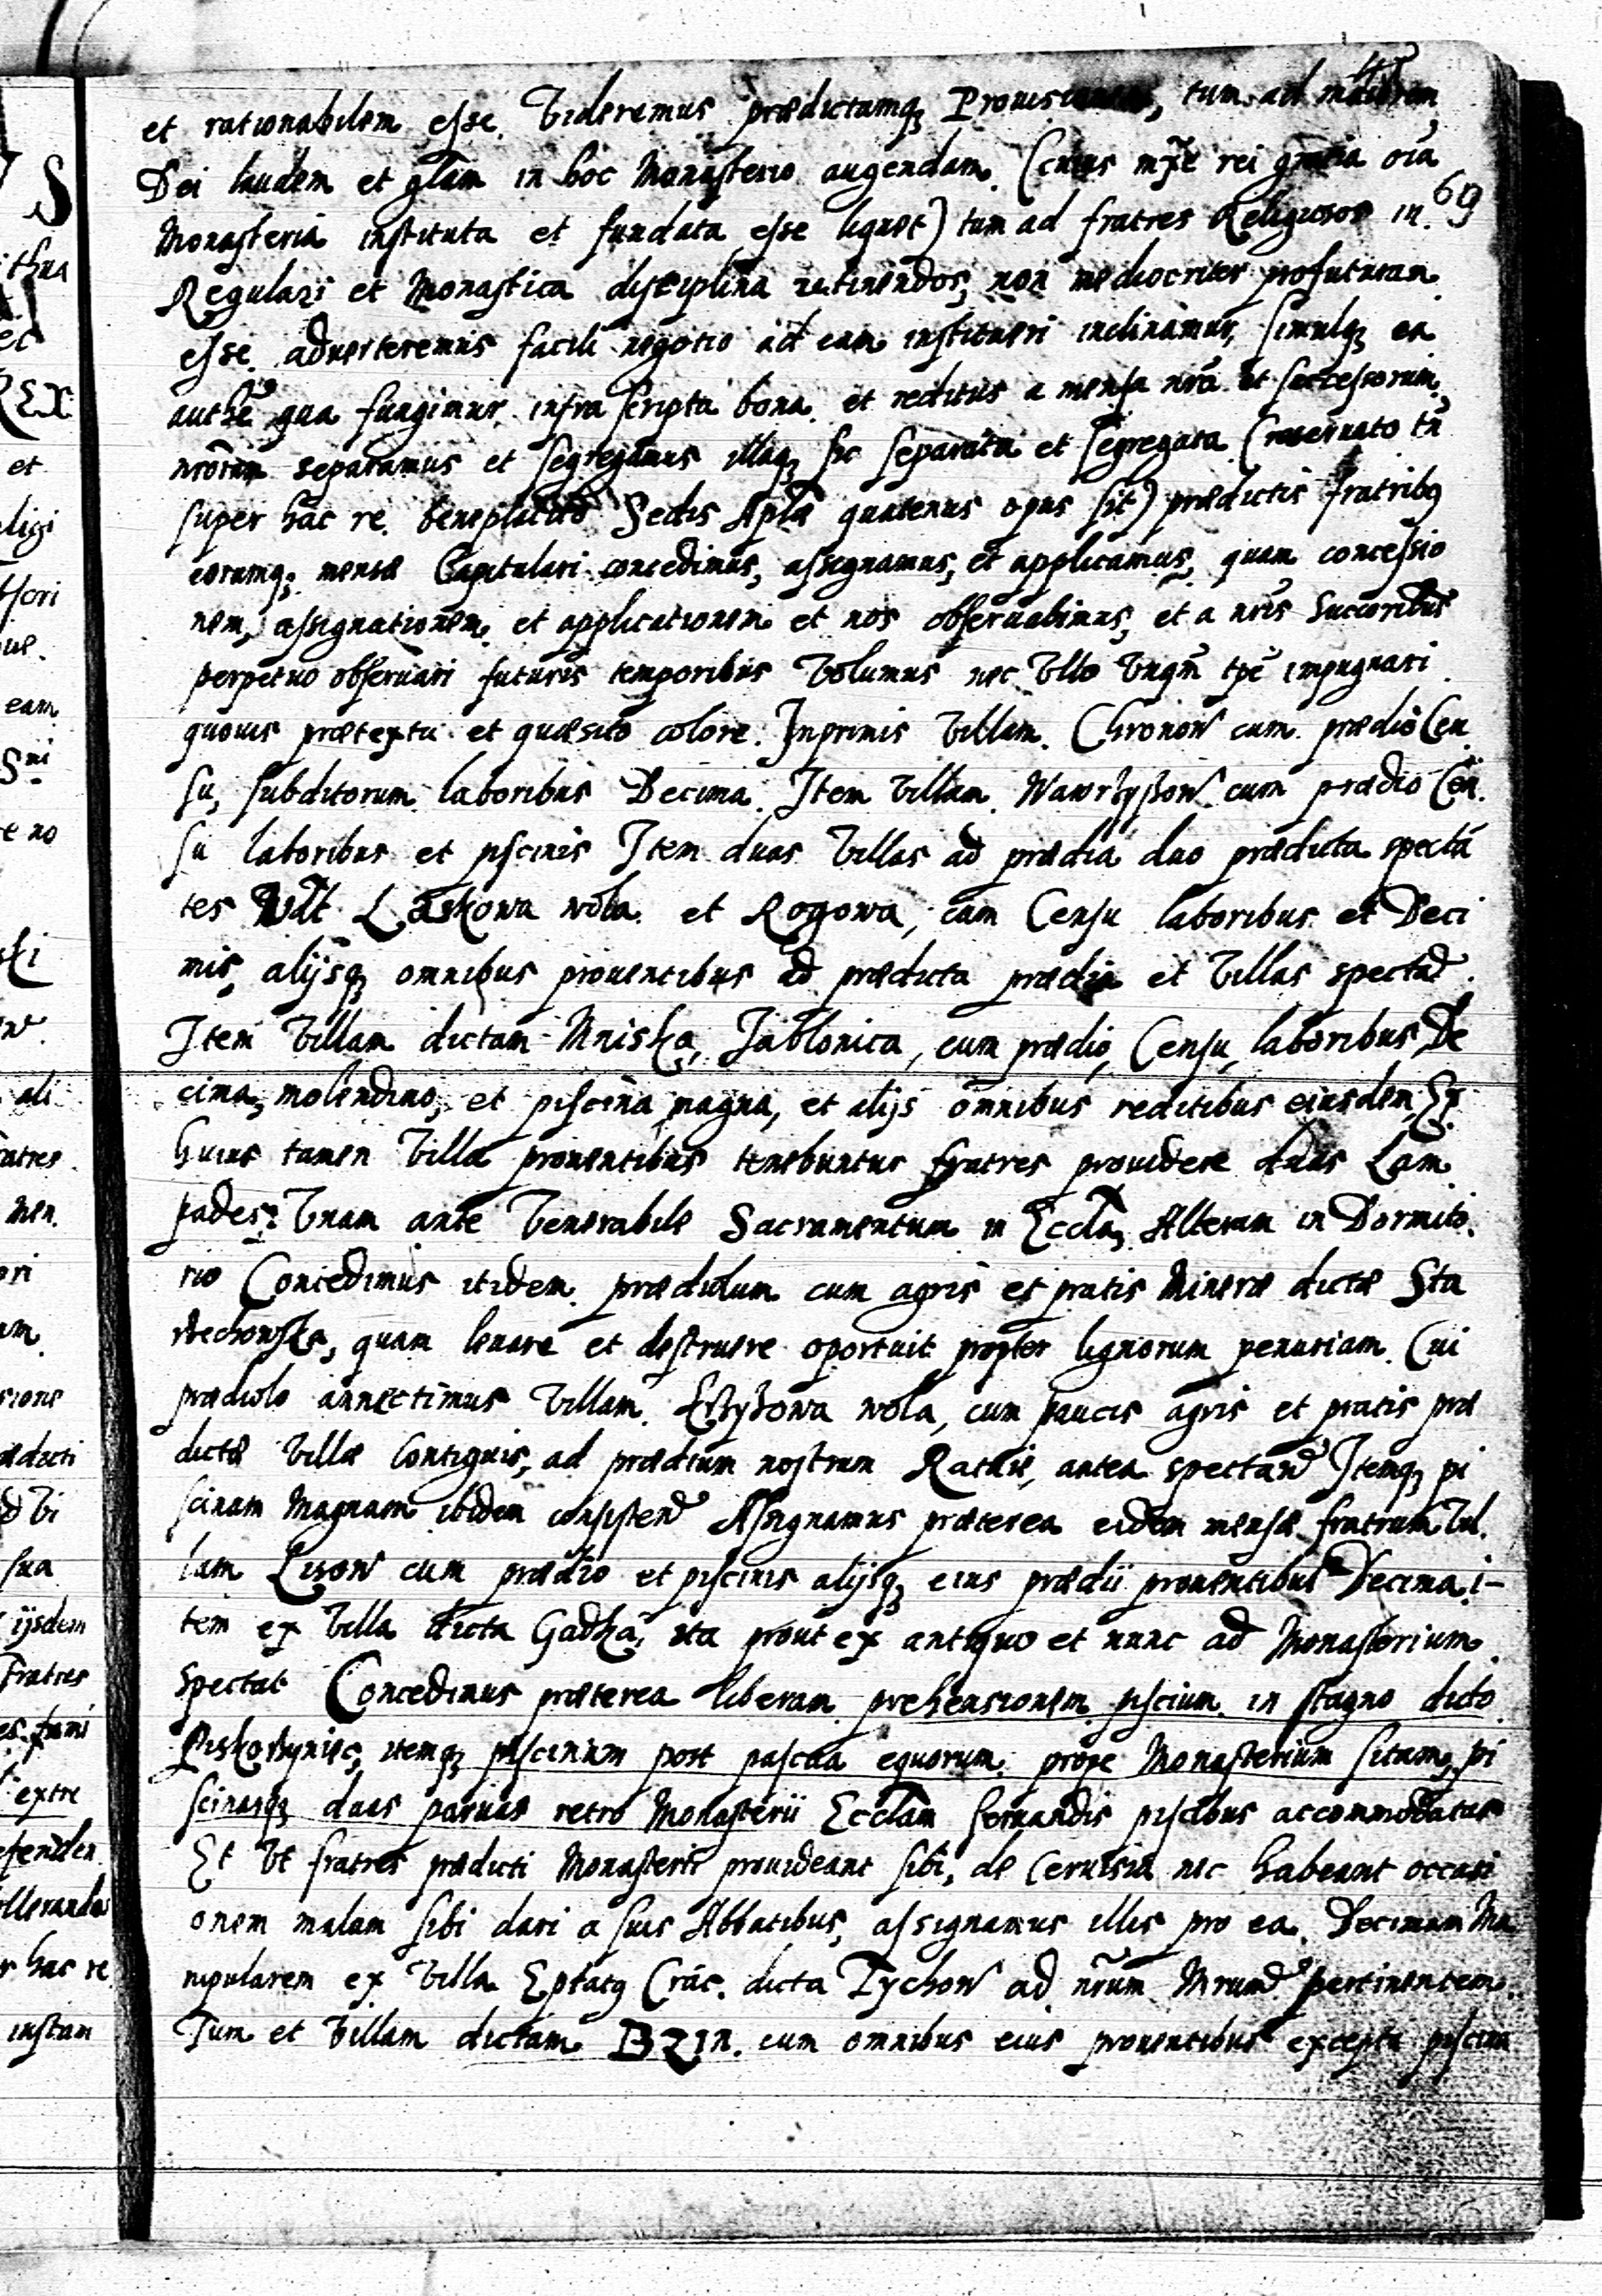 et rationabilem esse. Videremus prædictamq; Prouisionem, tum ad maiorem
Dei laudem et glam in hoc Monasterio augendam. (cuius mxe rei gratia oia
69
Monasteria instituta et fundata esse liquet) tum ad fratres Religiosos in
Regulari et Monastica disciplina retinendos, non mediocriter profuturam
esse. aduerteremus facili negotio ad eam institueri inclinamur, simulq; ea
authe qua fungimur infra scripta bona et reditus a mensa nra et successorum
nrorum separamus et segregamus illaq; sic separata et segregata (reseruato tn
super hac re. beneplacito Sedis Aplæ quatenus opus sit) prædictis fratribq
eorumq; mensæ Capitulari concedimus, assignamus, et applicamus, quam concessio
nem, assignationem et applicationem et nos obseruabimus, et a nris Succoribus
perpetuo obseruari futuris temporibus Volumus nec Vllo Vnqm tpe impugnari
quouis prætextu et quæsito colore. Inprimis Villam Chronow cum prædio Cen
su, subditorum laboribus Decima. Item Villam Wawrzyszow cum prædio Cen
su laboribus et piscinis Item duas Villas ad prædia duo prædicta specta
tes Laskowa wola et Rogowa, cum Censu laboribus et Deci
mis, alijsq; omnibus prouentibus ad prædicta prædia et Villas spectad.
Item Villam dictam Mniska, Jablonica, cum prædio, Censu, laboribus De
cima, molendino, et piscina magna, et alijs omnibus reditibus eiusdem Ex
huius tamen Villæ prouentibus tenebuntur fratres prouidere duas Lam
pades: Vnam ante Venerabile Sacramentum in Eccla, Alteram in Dormito
rio Concedimus itidem prædiolum cum agris et pratis Mineræ dictæ Sta
rechowska, quam leuare et destruere oportuit propter lignorum penuriam Cui
prædiolo annectimus Villam Krzyzowa wola, cum paucis agris et pratis præ
dictæ Villæ Contiguis, ad prædium nostrum Rataie, antea spectand Itemq; pi
scinam Magnam ibidem consistend Assignamus præterea eidem mensæ fratrum Vil
lam Lisow cum prædio et piscinis alijsq; eius prædii prouentibus Decima i-
tem ex Villa dicta Gadka, ita prout ex antiquo et nunc ad Monasterium
spectat Concedimus præterea liberam prehensionem piscium in stagno dicto
Piskorzyniec, itemq; piscinam post pascua equorum prope Monasterium sitam, pi
scinasq; duas paruas retro Monasterii Ecclam seruandis piscibus accommodatas
Et Vt fratres prædicti Monasterii prouideant sibi, de Ceruisia nec habeant occasi
onem malam sibi dari a suis Abbatibus, assignamus illis pro ea Decimam Ma
nipularem ex Villa Eptatq Crac. dicta Tychow ad nrum Mrium pertinentem.
Tum et Villam dictam BZIN. cum omnibus eius prouentibus excepta piscina